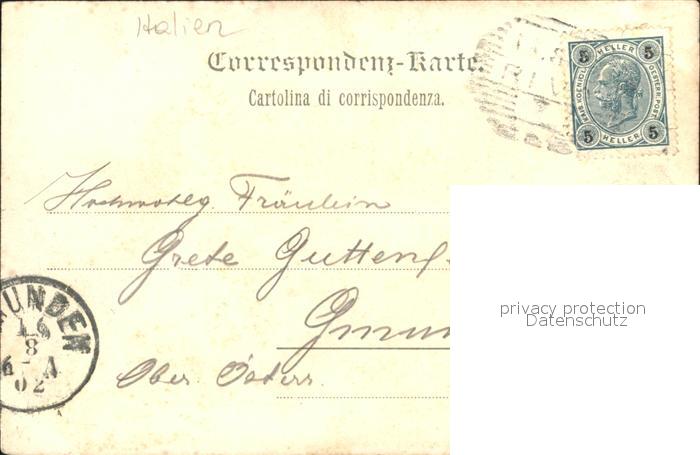 Italien
Correspondenz-Karte.
Cartolina di corrispondenza.
5 HELLER 5
KAIS. KOENIGL. OESTERR. POST.
5 HELLER 5
Hochwohlg. Fräulein
Grete Guttenf
Gmun
Ober Österr.
MUNDEN
16
8
02
privacy protection
Datenschutz